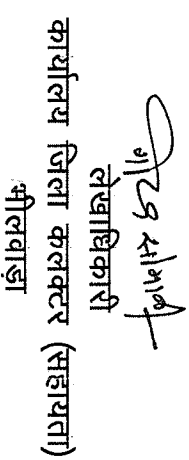 लेखाधिकारी
कार्यालय जिला कलक्टर (सहायता)
भीलवाड़ा